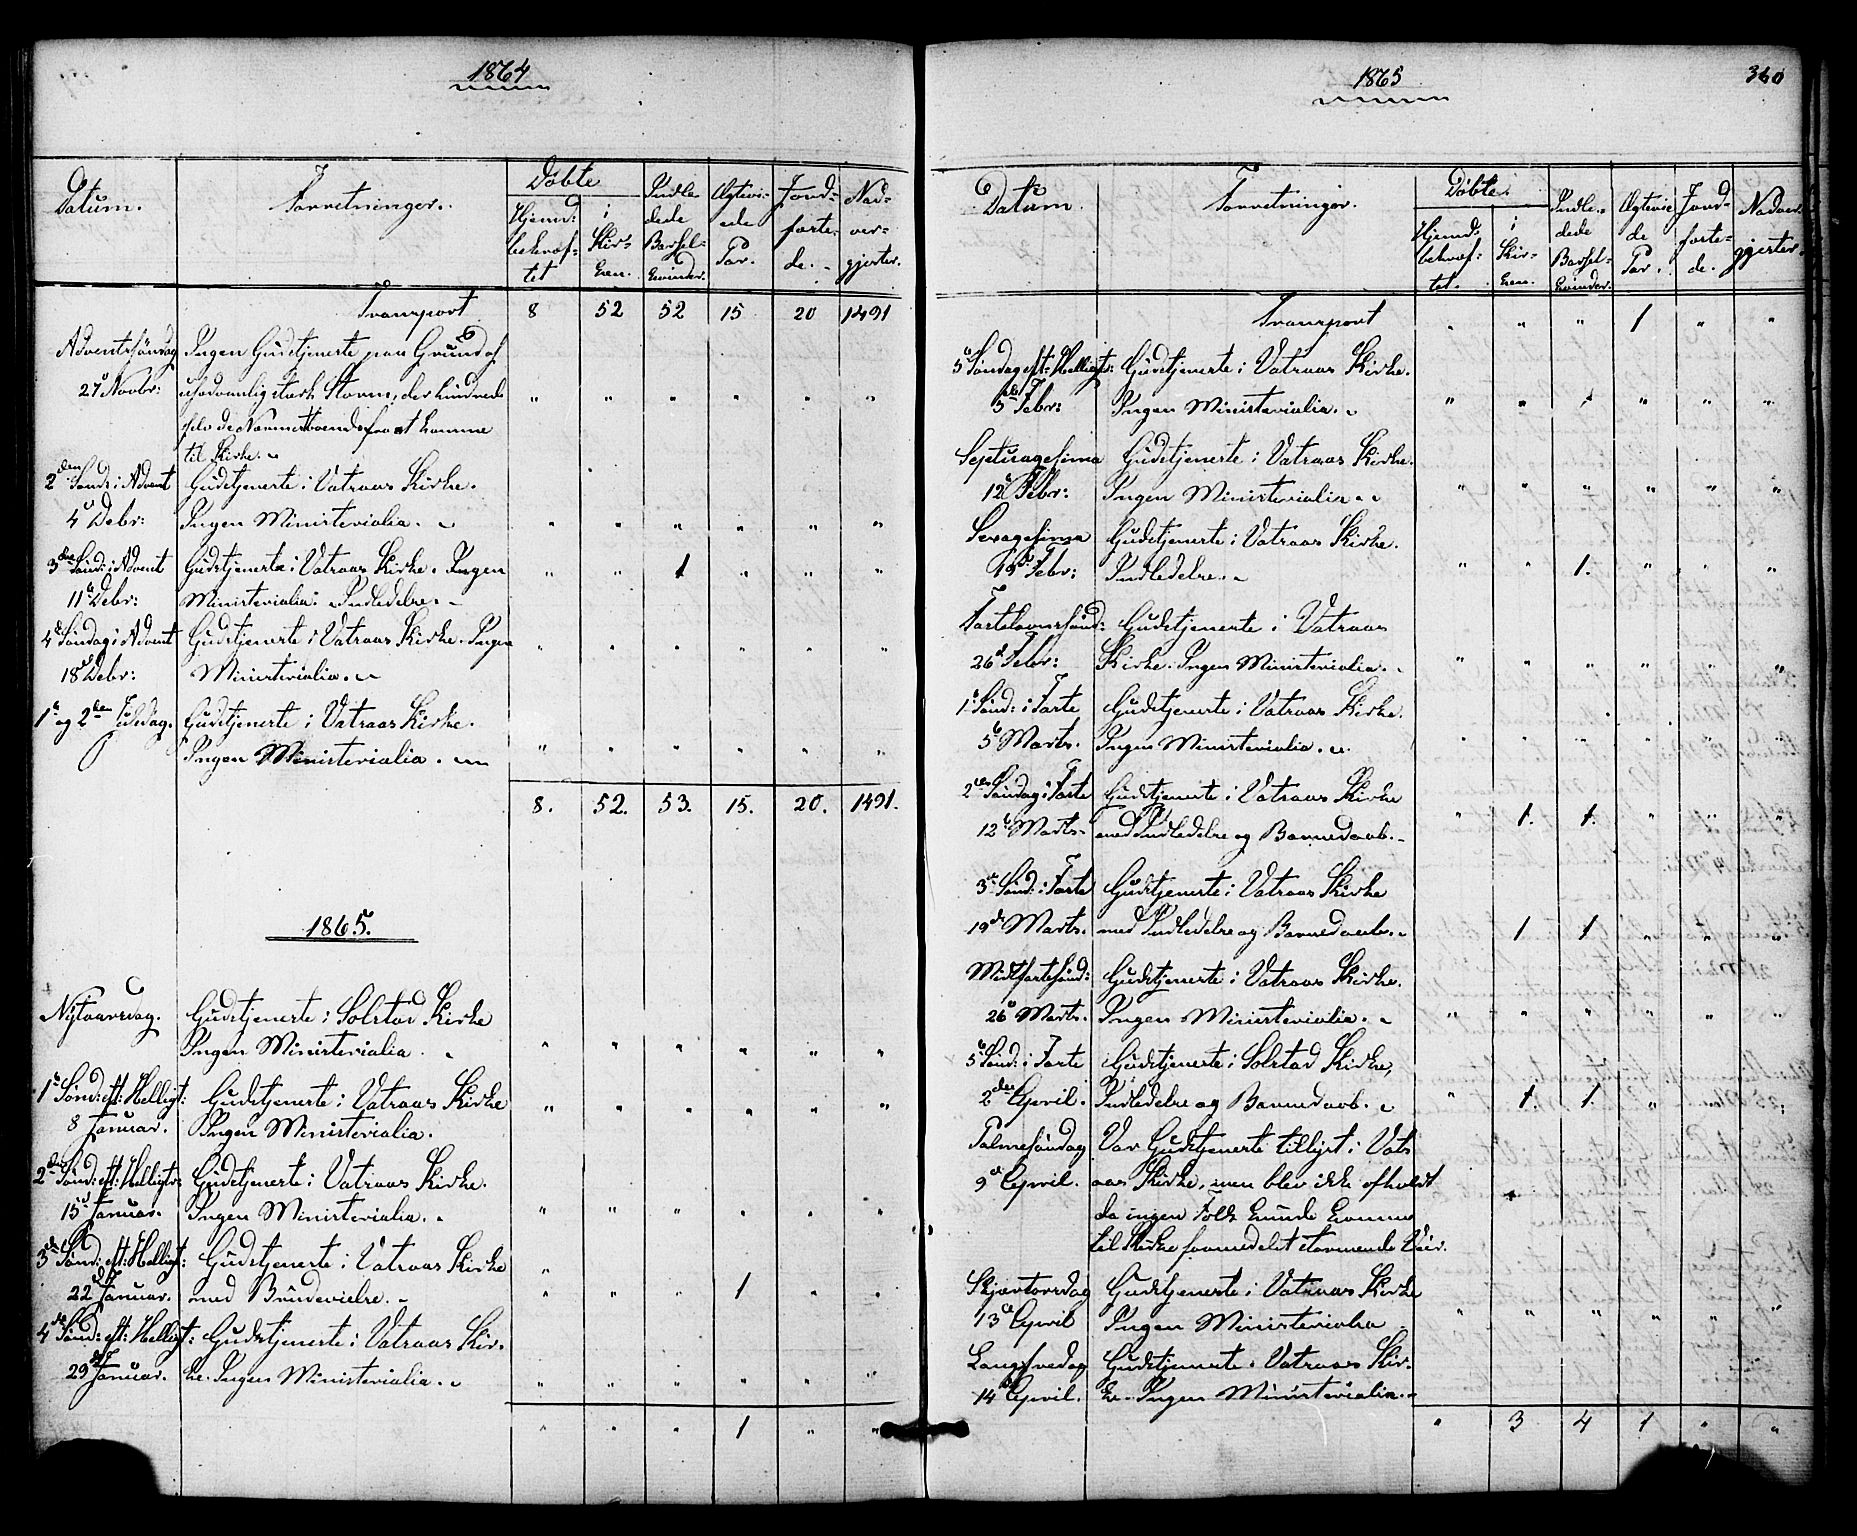 1864
Datum.
Forretninger.
Døbte
Hjemd:
bekræf-
tet
i
Kir-
ken.
Indle
dede
Barsel-
kvinder.
Ægtevi-
ede
Par.
Jord-
fæste-
de.
Nad-
ver-
gjester.
Transport 8 52 52 15 20 1491
Adventssøndag Ingen Gudstjeneste paa Grund af
27de Novbr: usædvanlig stærk Storm, der hindrede " " " " " "
selv de Nærmestboende fra at komme
til Kirke.
2den Sønd: i Advent Gudstjeneste i Vatraas Kirke.
4de Decbr: Ingen Ministerialia. " " " " " "
3die Sønd: i Advent Gudstjeneste i Vatraas Kirke. Ingen " " 1 " " "
11te Decbr: Ministerialia. Indledelse.
4de Søndag i Advent Gudstjeneste i Vatraas Kirke. Ingen " " " " " "
18de Decbr: Ministerialia.
1ste og 2den Juledag. Gudstjeneste i Vatraas Kirke.
Ingen Ministerialia. " " " " " "
8. 52. 53. 15. 20. 1491.
1865.
Nytaarsdag. Gudstjeneste i Solstad Kirke
Ingen Ministerialia. " " " " " "
1ste Sønd: eft: Helligt: Gudstjeneste i Vatraas Kirke " " " " " "
8 Januar. Ingen Ministerialia.
2den Sønd: eft: Helligtr: Gudstjeneste i Vatraas Kirke.
15de Januar. Ingen Ministerialia. " " " " " "
3die Sønd: eft: Helligt: Gudstjeneste i Vatraas Kirke
22de Januar. med Brudevielse. " " " 1 " "
4de Sønd: eft: Helligt: Gudstjeneste i Vatraas Kir-
29de Januar. ke. Ingen Ministerialia. " " " " " "
" " " 1 " "
1865
360
Datum.
Forretninger.
Døbte
Hjemd:
bekræf:
tet.
i
Kir-
ken.
Indle-
dede
Barsel-
kvinder.
Ægtevie
de
Par.
Jord-
fæste-
de.
Nadver-
gjester.
Transport " " " 1 " "
5te Søndag eft: Helligt: Gudstjeneste i Vatraas Kirke.
5te Febr: Ingen Ministerialia. " " " " " "
Septuagesima Gudstjeneste i Vatraas Kirke.
12te Febr: Ingen Ministerialia. " " " " " "
Sexagesima Gudstjeneste i Vatraas Kirke.
19de Febr: Indledelse. " " 1. " " "
Fastelavnssønd: Gudstjeneste i Vatraas
26de Febr: Kirke. Ingen Ministerialia. " " " " " "
1ste Sønd: i Faste Gudstjeneste i Vatraas Kirke.
5te Marts. Ingen Ministerialia. " " " " " "
2den Søndag i Faste Gudstjeneste i Vatraas Kirke
12te Marts. med Indledelse og Barnedaab. " 1. 1. " " "
3die Sønd: i Faste Gudstjeneste i Vatraas Kirke
19de Marts. med Indledelse og Barnedaab. 1 1 " " "
Midtfastesønd: Gudstjeneste i Vatraas Kirke.
26de Marts. Ingen Ministerialia. " " " " " "
5te Sønd: i Faste Gudstjeneste i Solstad Kirke,
2den April. Indledelse og Barnedaab. " 1. 1. "
Palmesøndag Var Gudstjeneste tillyst i Vatra
9de April. aas Kirke, men blev ikke afholdt
da ingen Folk kunde komme
til Kirke formedelst stormende Veir.
Skjærtorsdag Gudstjeneste i Vatraas Kirke
13de April Ingen Ministerialia " " " " " "
Langfredag Gudstjeneste i Vatraas Kir-
14de April. ke. Ingen Ministerialia.
" 3 4 1 " "